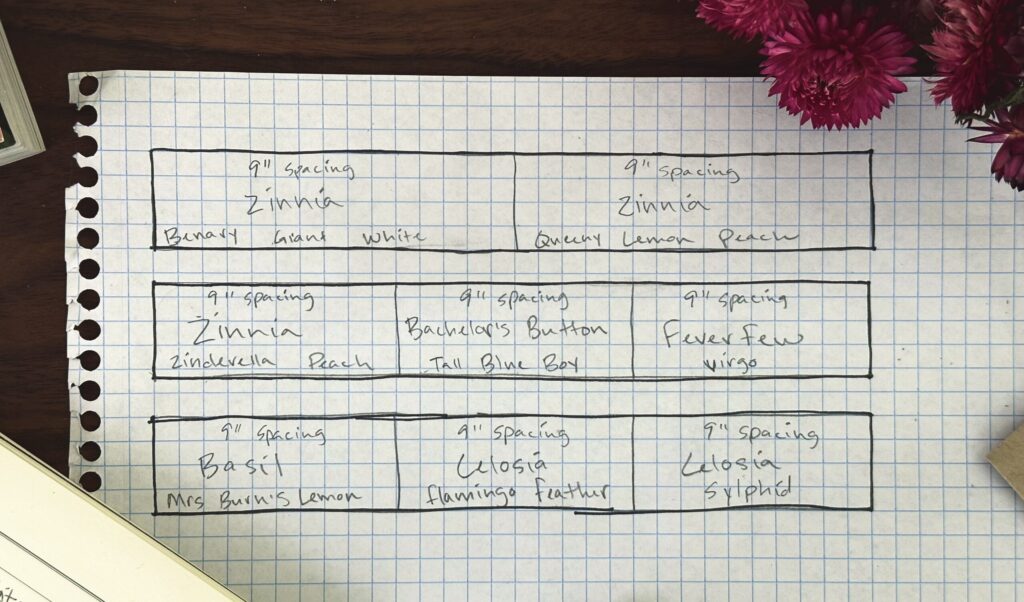 9" spacing
Zinnia
Benary Giant White
9" spacing
Zinnia
Queeny Lemon Peach
9" spacing
Zinnia
Zinderella Peach
9" spacing
Bachelor's Button
Tall Blue Boy
9" spacing
Feverfew
virgo
9" spacing
Basil
Mrs Burn's Lemon
9" spacing
Celosia
flamingo feather
9" spacing
Celosia
Sylphid